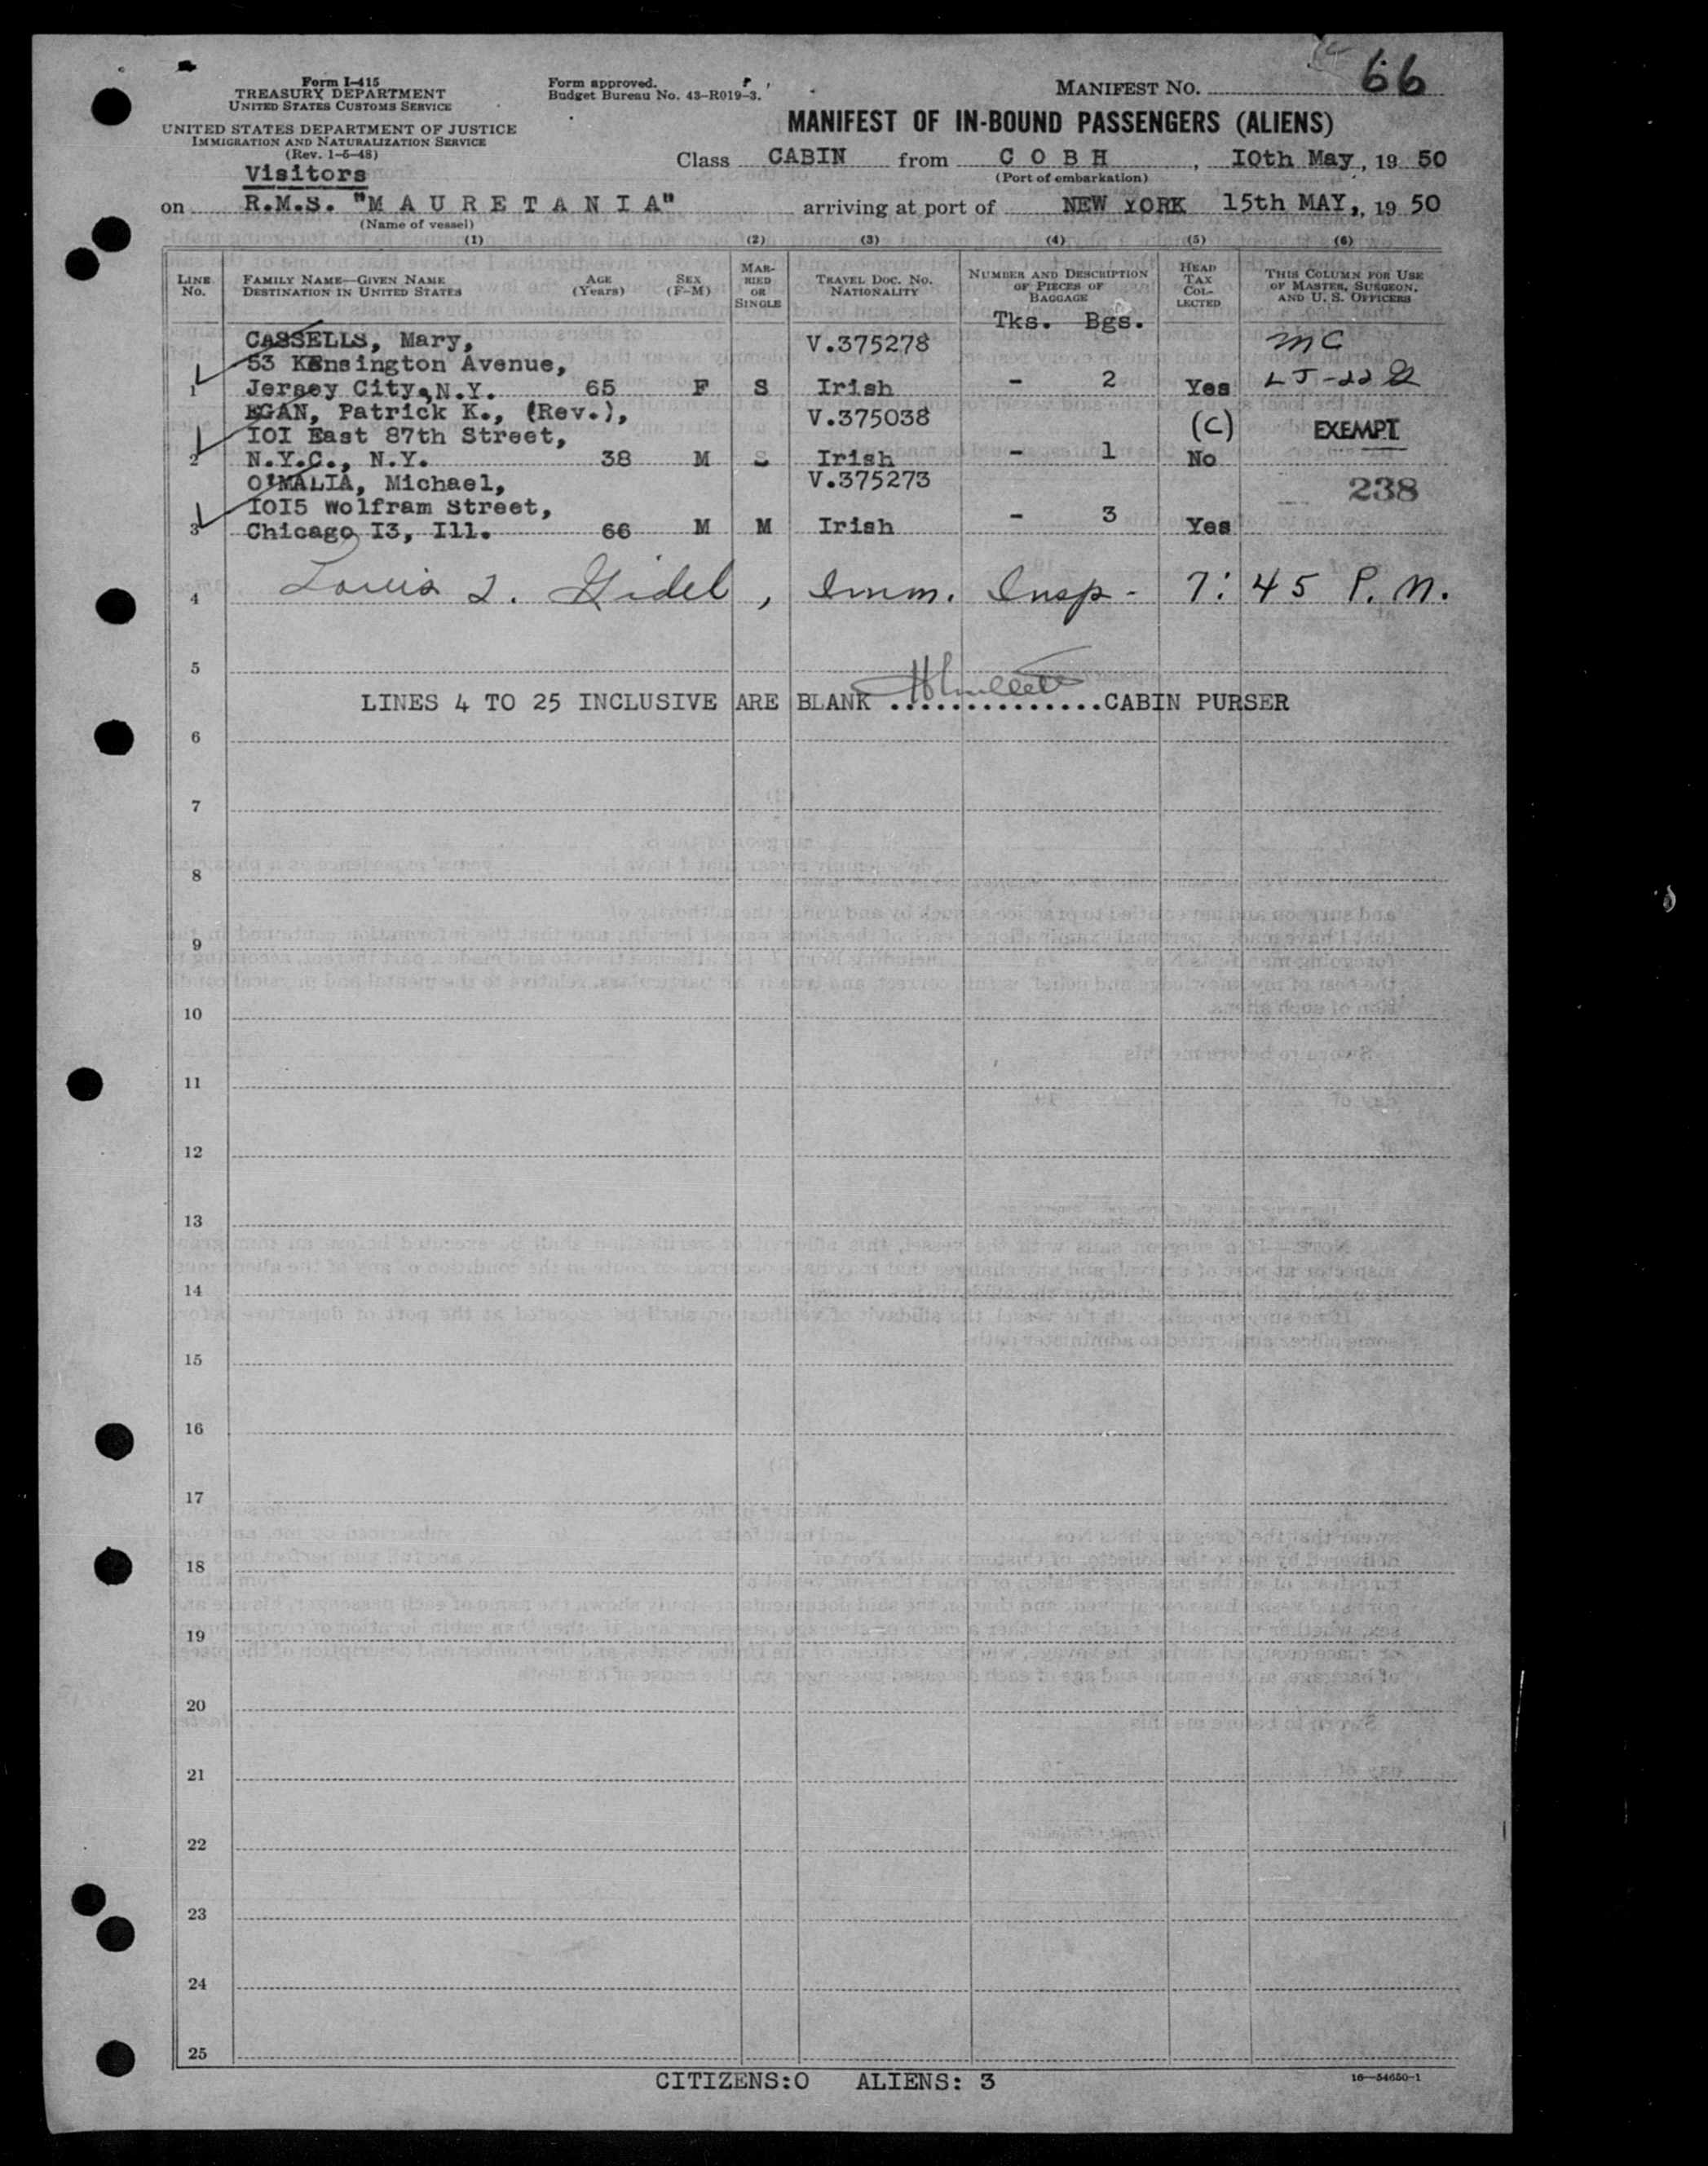 66
Form I-415
TREASURY DEPARTMENT
UNITED STATES CUSTOMS SERVICE
UNITED STATES DEPARTMENT OF JUSTICE
IMMIGRATION AND NATURALIZATION SERVICE
(Rev. 1-5-48)
Form approved.
Budget Bureau No. 43-R019-3.
MANIFEST NO.
MANIFEST OF IN-BOUND PASSENGERS (ALIENS)
Visitors
Class CABIN from C O B H, I0th May, 19 50
(Port of embarkation)
on R.M.S. "M A U R E T A N I A" arriving at port of NEW YORK 15th MAY,, 19 50
(Name of vessel)
(1) (2) (3) (4) (5) (6)
LINE No. FAMILY NAME—GIVEN NAME DESTINATION IN UNITED STATES AGE (Years) SEX (F-M) MARRIED OR SINGLE TRAVEL DOC. NO. NATIONALITY NUMBER AND DESCRIPTION OF PIECES OF BAGGAGE HEAD TAX COLLECTED THIS COLUMN FOR USE OF MASTER, SURGEON, AND U. S. OFFICERS
Tks. Bgs.
CASSELLS, Mary, V.375278 MC
53 Kensington Avenue,
1 Jersey City, N.Y. 65 F S Irish - 2 Yes LJ-22
EGAN, Patrick K., (Rev.), V.375038 (C) EXEMPT
I0I East 87th Street,
2 N.Y.C., N.Y. 38 M S Irish - 1 No
O'MALIA, Michael, V.375273 238
I0I5 Wolfram Street,
3 Chicago I3, Ill. 66 M M Irish - 3 Yes
4 Louis J. Gidel, Imm. Insp - 7:45 P.M.
5
LINES 4 TO 25 INCLUSIVE ARE BLANK ...............CABIN PURSER
6
7
8
9
10
11
12
13
14
15
16
17
18
19
20
21
22
23
24
25
CITIZENS:0 ALIENS: 3
16—54650-1